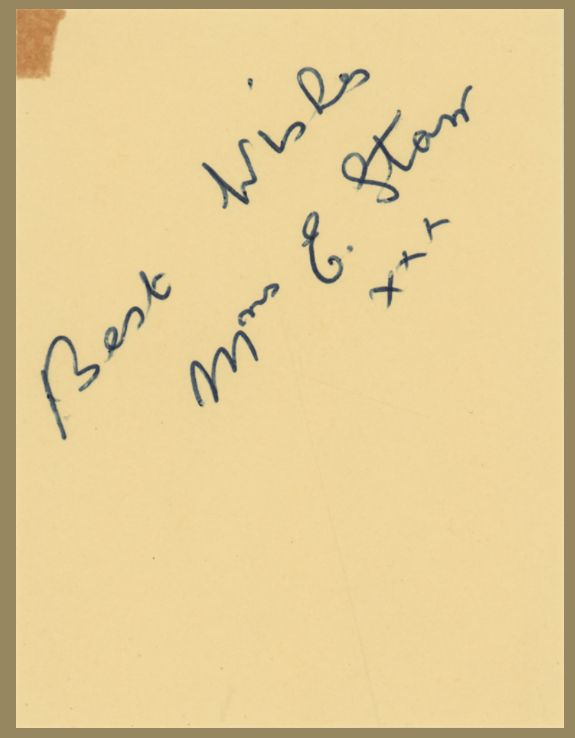 Best Wishes
Mrs E. Starr
xxx